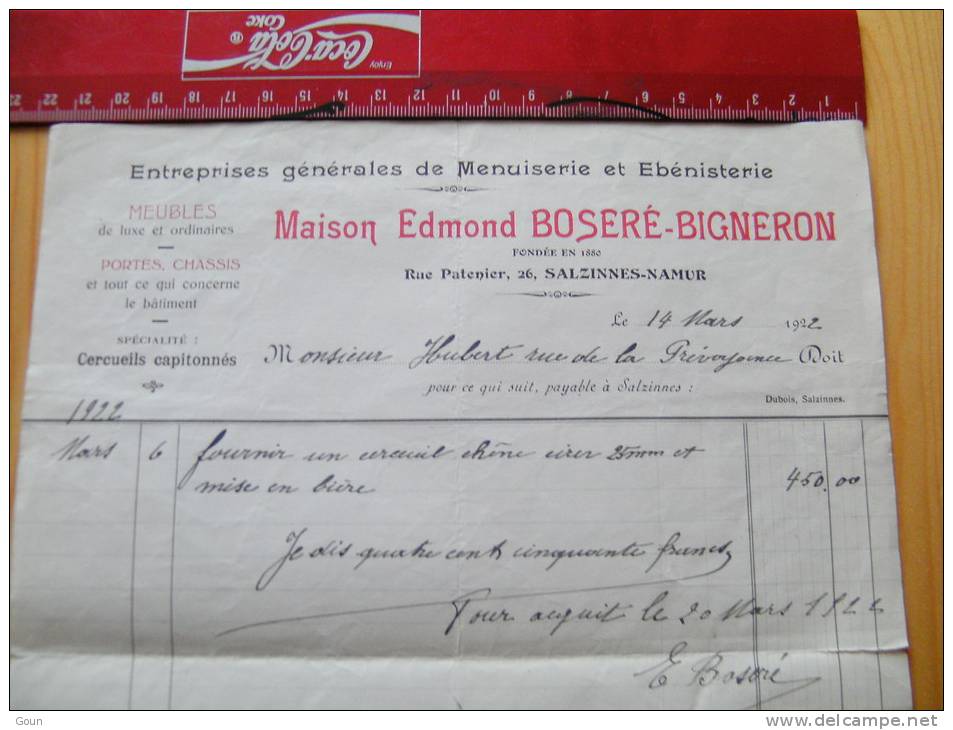 Enjoy
Coca-Cola ®
Coke
23 22 21 20 19 18 17 16 15 14 13 12 11 10 9 8 7 6 5 4 3 2 1
Entreprises générales de Menuiserie et Ebénisterie
MEUBLES
de luxe et ordinaires
PORTES, CHASSIS
et tout ce qui concerne
le bâtiment
SPÉCIALITÉ :
Cercueils capitonnés
Maison Edmond BOSERÉ-BIGNERON
FONDÉE EN 1880
Rue Patenier, 26, SALZINNES-NAMUR
Le 14 Mars 1922
Monsieur Hubert rue de la Prévoyance Doit
pour ce qui suit, payable à Salzinnes :
Dubois, Salzinnes.
1922
Mars 6 fournir un cercueil chêne cirer 25mm et
mise en bière 450.00
Je dis quatre cent cinquante francs
Pour acquit le 20 Mars 1922
E Boseré
Goun
www.delcampe.net